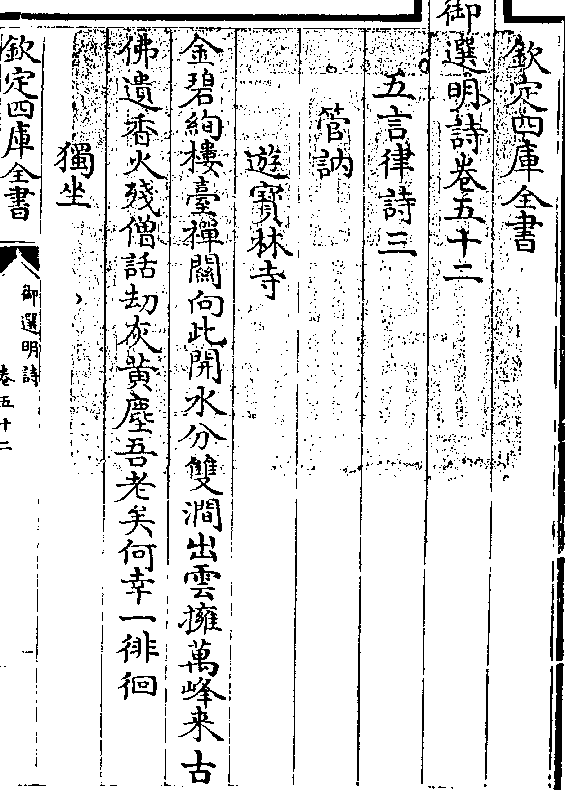 欽定四庫全書
御選明詩卷五十二
五言律詩三
管訥
遊寶林寺
金碧絢樓臺禪關向此開水分雙澗出雲擁萬峰来古
佛遺香火殘僧話劫灰黃塵吾老矣何幸一徘徊
獨坐
欽定四庫全書
御選明詩
卷五十二